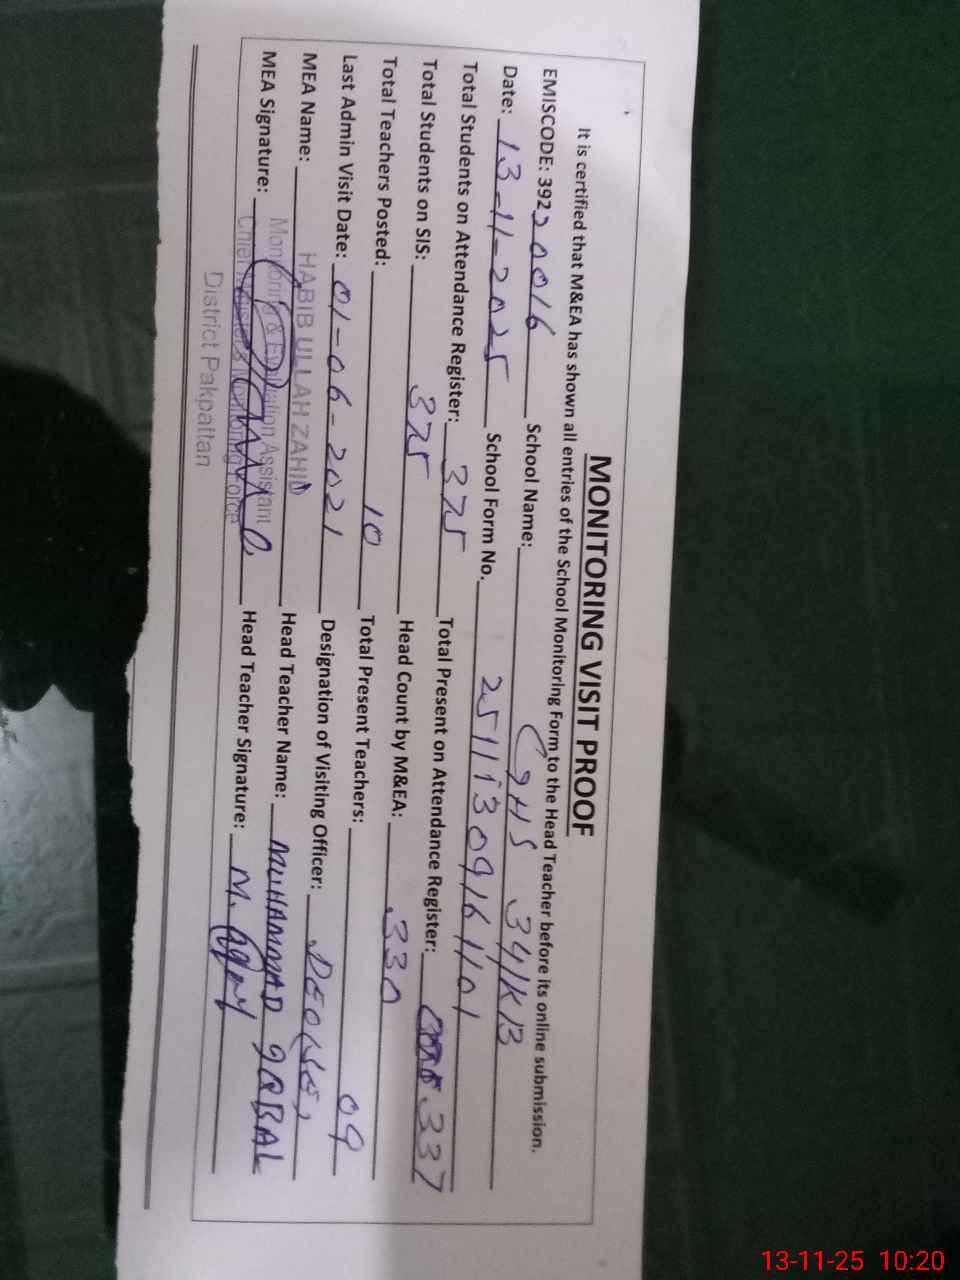 MONITORING VISIT PROOF
It is certified that M&EA has shown all entries of the School Monitoring Form to the Head Teacher before its online submission.
EMISCODE: 39220016 School Name: GHS 34/KB
Date: 13-11-2025 School Form No. 25111309161101
Total Students on Attendance Register: 375 Total Present on Attendance Register: 337
Total Students on SIS: 375 Head Count by M&EA: 330
Total Teachers Posted: 10 Total Present Teachers: 09
Last Admin Visit Date: 01-06-2021 Designation of Visiting Officer: DEO(SE)
MEA Name: HABIB ULLAH ZAHID Head Teacher Name: MUHAMMAD IQBAL
Monitoring & Evaluation Assistant
MEA Signature: Chief Minister's Monitoring Force Head Teacher Signature: M.
District Pakpattan
13-11-25 10:20